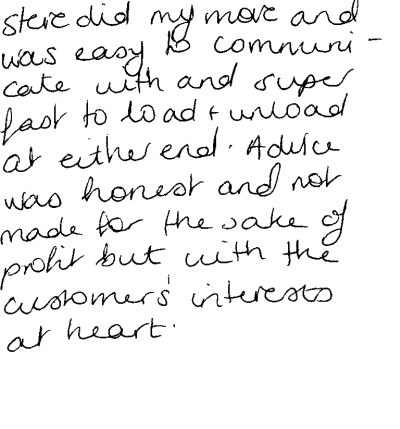 Steve did my move and
was easy to communi-
cate with and super
fast to load + unload
at either end. Advice
was honest and not
made for the sake of
profit but with the
customer's interests
at heart.